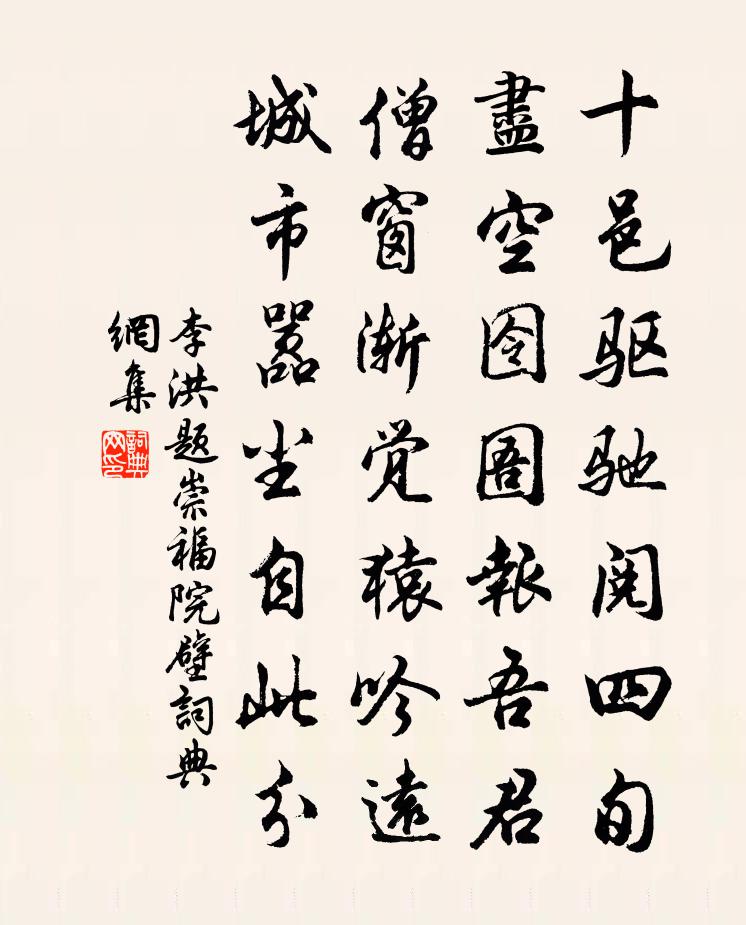 十邑驱驰阅四旬
盡空囹圄報吾君
僧窗渐觉猿吟遠
城市嚣尘自此分
李洪题崇福院壁詞典
網集
詞典
网印